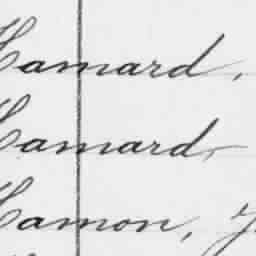 Hamard,
Hamard,
Hamon,